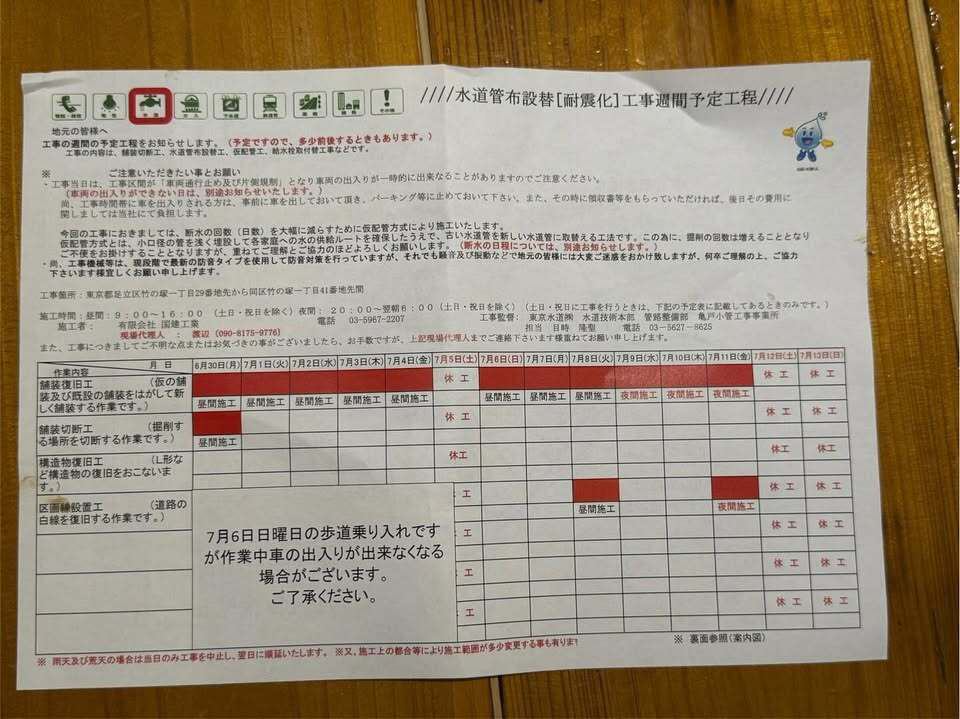 ////水道管布設替[耐震化]工事週間予定工程////
電気
水道
ガス
下水道
その他
地元の皆様へ
工事の週間の予定工程をお知らせします。(予定ですので、多少前後するときもあります。)
工事の内容は、舗装切断工、水道管布設替工、仮配管工、給水栓取付替工事などです。
※ ご注意いただきたい事とお願い
・工事当日は、工事区間が「車両通行止め及び片側規制」となり車両の出入りが一時的に出来なることがありますのでご注意ください。
(車両の出入りができない日は、別途お知らせいたします。)
尚、工事時間帯に車を出入りされる方は、事前に車を出しておいて頂き、パーキング等に止めておいて下さい。また、その時に領収書等をもらっていただければ、後日その費用に
関しましては当社にて負担します。
今回の工事におきましては、断水の回数(日数)を大幅に減らすために仮配管方式により施工いたします。
仮配管方式とは、小口径の管を浅く埋設して各家庭への水の供給ルートを確保したうえで、古い水道管を新しい水道管に取替える工法です。この為に、掘削の回数は増えることとなり
ご不便をお掛けすることとなりますが、重ねてご理解とご協力のほどよろしくお願いします。(断水の日程については、別途お知らせします。)
・尚、工事機械等は、現段階で最新の防音タイプを使用して防音対策を行っていますが、それでも騒音及び振動などで地元の皆様には大変ご迷惑をおかけ致しますが、何卒ご理解の上、ご協力
下さいます様宜しくお願い申し上げます。
工事箇所:東京都足立区竹の塚一丁目29番地先から同区竹の塚一丁目41番地先間
施工時間:昼間:9:00〜16:00 (土日・祝日を除く) 夜間:20:00〜翌朝6:00 (土日・祝日を除く) (土日・祝日に工事を行うときは、下記の予定表に記載してあるときのみです。)
施工者: 有限会社 国建工業 電話 03-5967-2207 工事監督: 東京水道㈱ 水道技術本部 管路整備部 亀戸小菅工事事業所
現場代理人 : 渡辺(090-8175-9776) 担当 日時 隆聖 電話 03-5627-8625
また、工事につきましてご不明な点またはお気づきの事がございましたら、お手数ですが、上記現場代理人までご連絡下さいます様重ねてお願い申し上げます。
月 日
作業内容 6月30日(月) 7月1日(火) 7月2日(水) 7月3日(木) 7月4日(金) 7月5日(土) 7月6日(日) 7月7日(月) 7月8日(火) 7月9日(水) 7月10日(木) 7月11日(金) 7月12日(土) 7月13日(日)
舗装復旧工 (仮の舗
装及び既設の舗装をはがして新
しく舗装する作業です。)
休 工 休 工 休 工
昼間施工 昼間施工 昼間施工 昼間施工 昼間施工 昼間施工 昼間施工 昼間施工 夜間施工 夜間施工 夜間施工
舗装切断工 (掘削す
る場所を切断する作業です。)
休 工 休 工 休 工
昼間施工
構造物復旧工 (L形な
ど構造物の復旧をおこないま
す。)
休工 休工 休工
区画線設置工 (道路の
白線を復旧する作業です。)
工 休 工 休 工
昼間施工 夜間施工
工 休 工 休 工
工 休 工 休 工
工 休 工 休 工
7月6日日曜日の歩道乗り入れです
が作業中車の出入りが出来なくなる
場合がございます。
ご了承ください。
※ 裏面参照(案内図)
※ 雨天及び荒天の場合は当日のみ工事を中止し、翌日に順延いたします。 ※又、施工上の都合等により施工範囲が多少変更する事も有りま